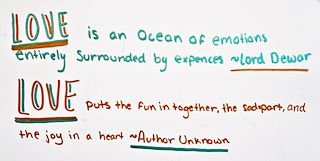 LOVE is an Ocean of emotions
entirely Surrounded by expences ~Lord Dewar
LOVE puts the fun in together, the sad apart, and
the joy in a heart ~Author Unknown